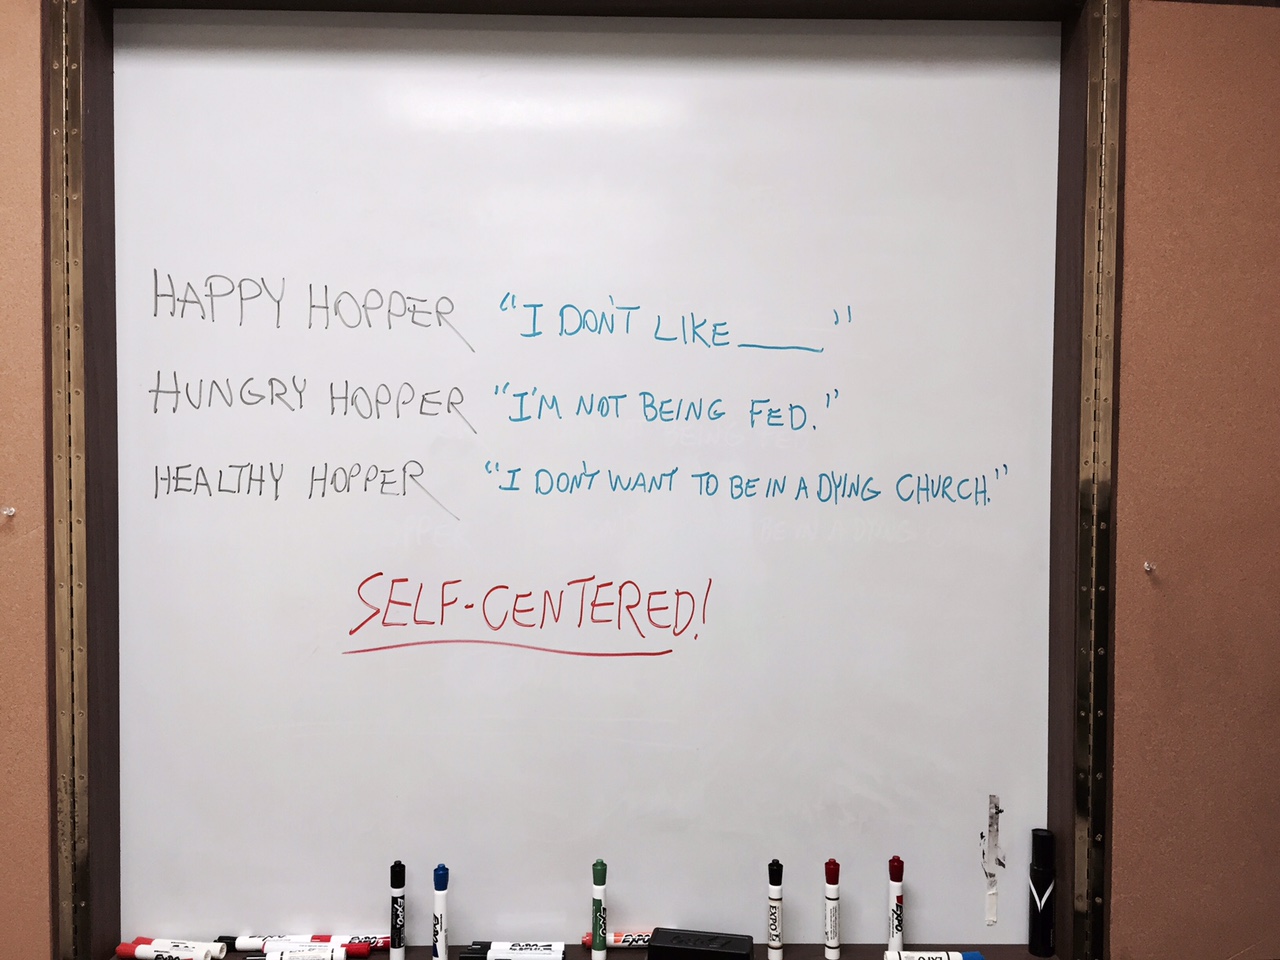 HAPPY HOPPER "I DON'T LIKE ____"
HUNGRY HOPPER "I'M NOT BEING FED."
HEALTHY HOPPER "I DON'T WANT TO BE IN A DYING CHURCH."
SELF-CENTERED!
EXPO
EXPO
EXPO
EXPO
EXPO
EXPO
EXPO